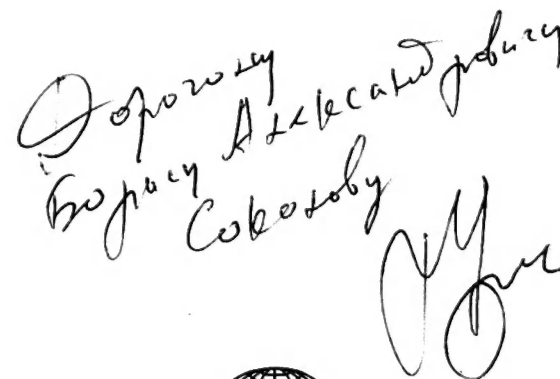 Дорогому
Борису Александровичу
Соколову